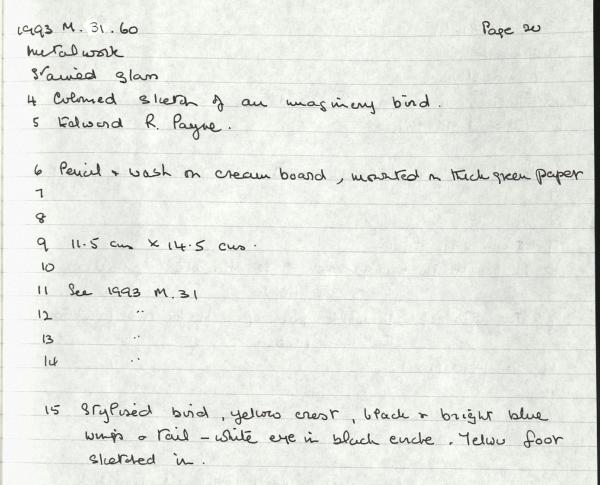 1993 M. 31. 60 Page 20
Metalwork
Stained glass
4 Coloured sketch of an imaginery bird.
5 Edward R. Payne.
6 Pencil + wash on cream board, mounted on thick green paper
7
8
9 11.5 cms × 14.5 cms.
10
11 See 1993 M. 31
12 "
13 "
14 "
15 Stylised bird, yellow crest, black + bright blue
wings & tail - white eye in black circle. Yellow foot
sketched in.